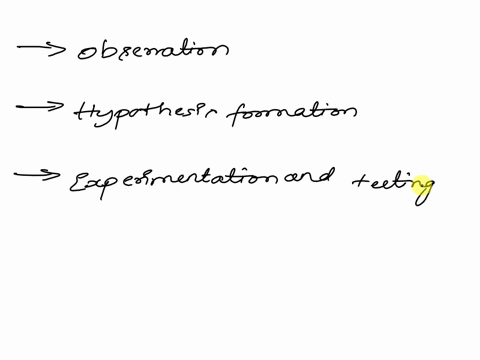 → Observation
→ Hypothesis formation
→ Experimentation and testing